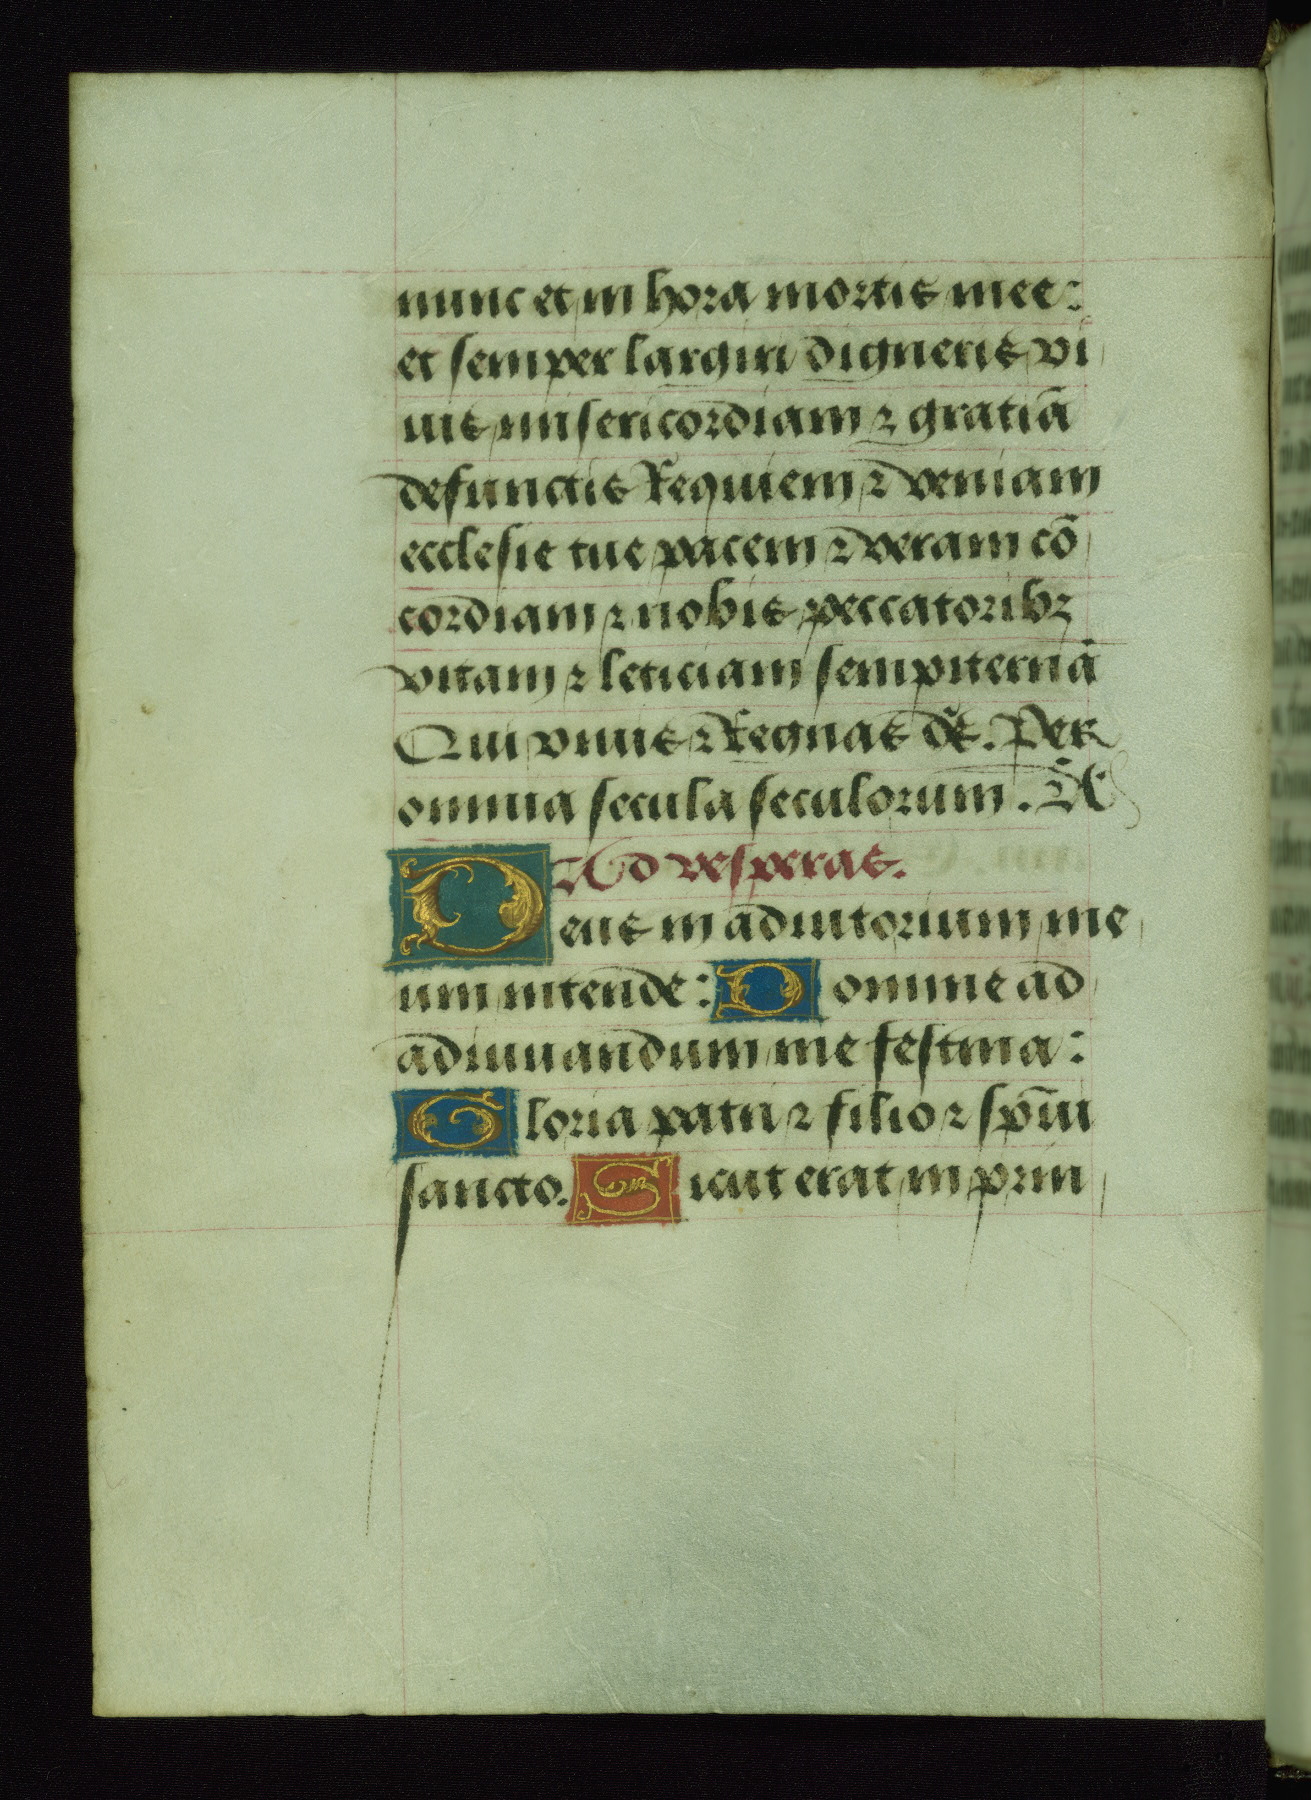 nunc et in hora mortis mee:
et semper largiri digneris vi
uis misericordiam ⁊ gratiā
defunctis Requiem ⁊ veniam
ecclesie tue pacem ⁊ veram cō
cordiam ⁊ nobis peccatoribꝫ
vitam ⁊ leticiam sempiternā
Qui viuis ⁊ Regnas dẽ. Per
omnia secula seculorum. Ā
Ad vesperas.
Deus in adiutorium me
um intende: Domine ad
adiuuandum me festina:
Gloria patri ⁊ filio ⁊ sp̄ui
sancto. Sicut erat in prin